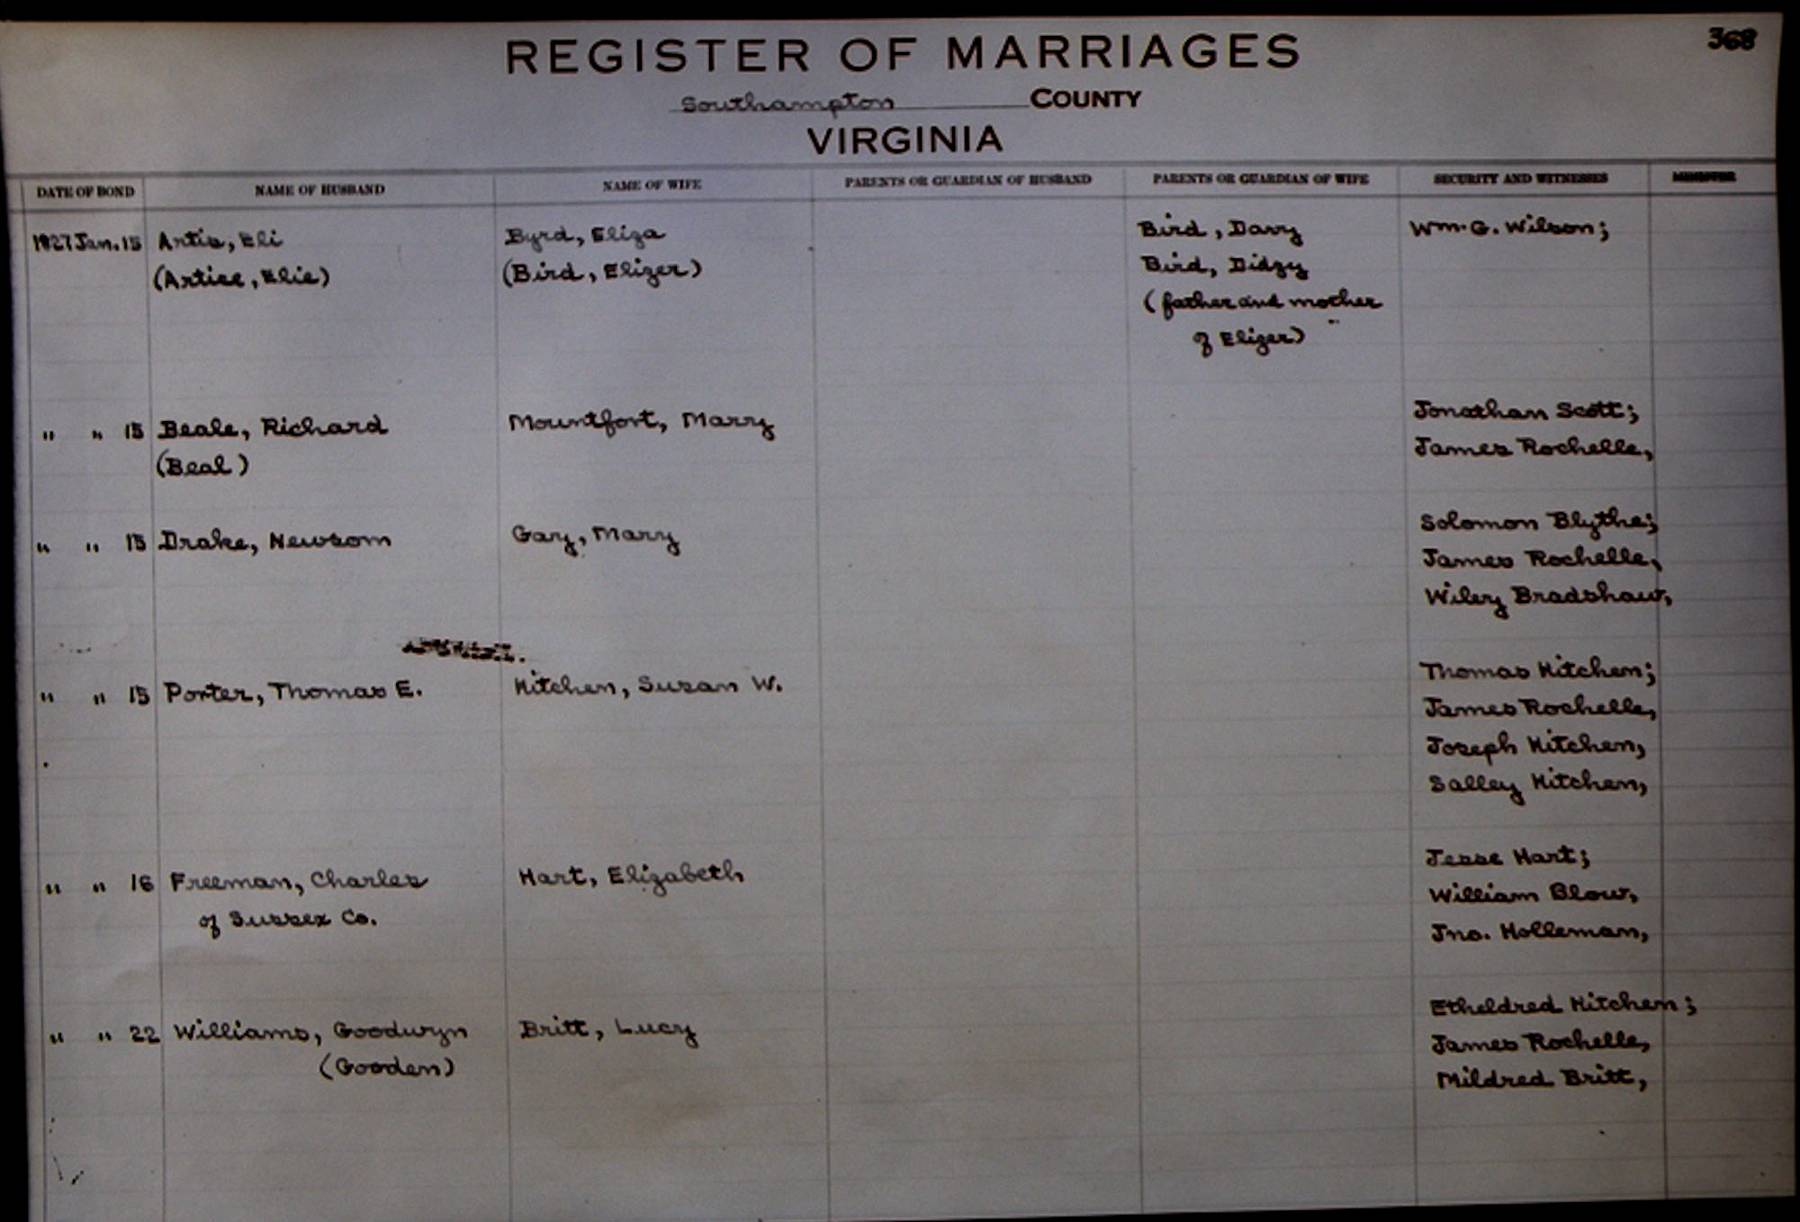 368
REGISTER OF MARRIAGES
Southampton COUNTY
VIRGINIA
DATE OF BOND NAME OF HUSBAND NAME OF WIFE PARENTS OR GUARDIAN OF HUSBAND PARENTS OR GUARDIAN OF WIFE SECURITY AND WITNESSES MINISTER
1827 Jan. 15 Artis, Eli Byrd, Eliza Bird, Davy Wm. G. Wilson;
(Artice, Elie) (Bird, Elizer) Bird, Didzy
(father and mother
of Elizer)
" " 15 Beale, Richard Mountfort, Marry Jonathan Scott;
(Beal) James Rochelle,
" " 15 Drake, Newsom Gary, Mary Solomon Blythe;
James Rochelle,
Wiley Bradshaw,
" " 15 Porter, Thomas E. Kitchen, Susan W. Thomas Kitchen;
James Rochelle,
Joseph Kitchen,
Salley Kitchen,
" " 16 Freeman, Charles Hart, Elizabeth Jesse Hart;
of Sussex Co. William Blow,
Jno. Holleman,
" " 22 Williams, Goodwyn Britt, Lucy Etheldred Kitchen;
(Gooden) James Rochelle,
Mildred Britt,